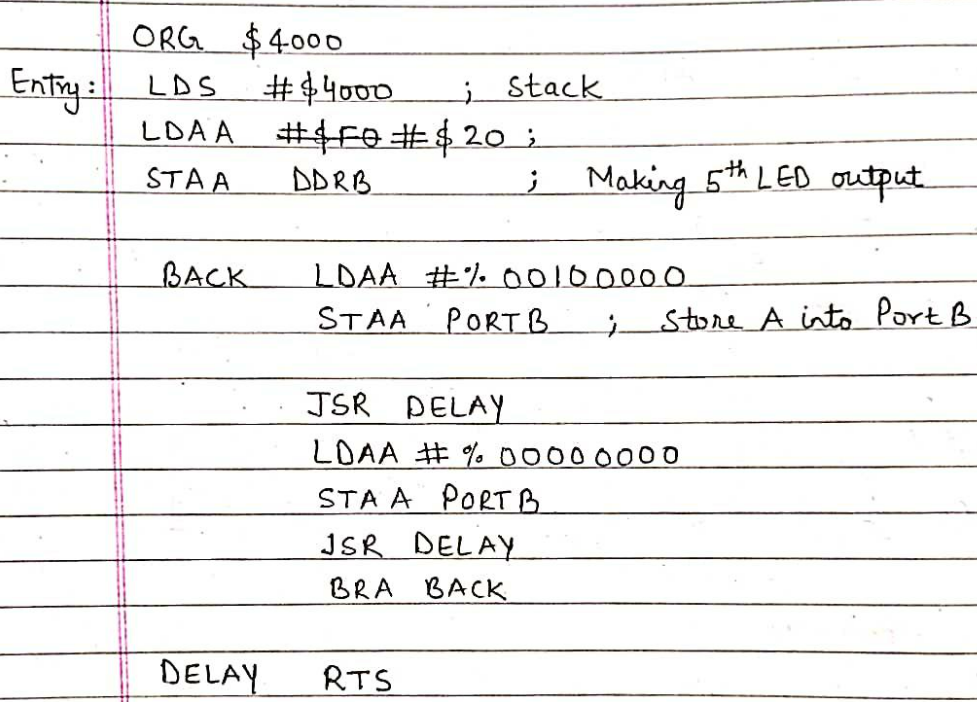 ORG $4000
Entry: LDS #$4000 ; Stack
LDAA #$F0 #$20 ;
STAA DDRB ; Making 5th LED output
BACK LDAA #%00100000
STAA PORTB ; Store A into Port B
JSR DELAY
LDAA #%00000000
STAA PORTB
JSR DELAY
BRA BACK
DELAY RTS